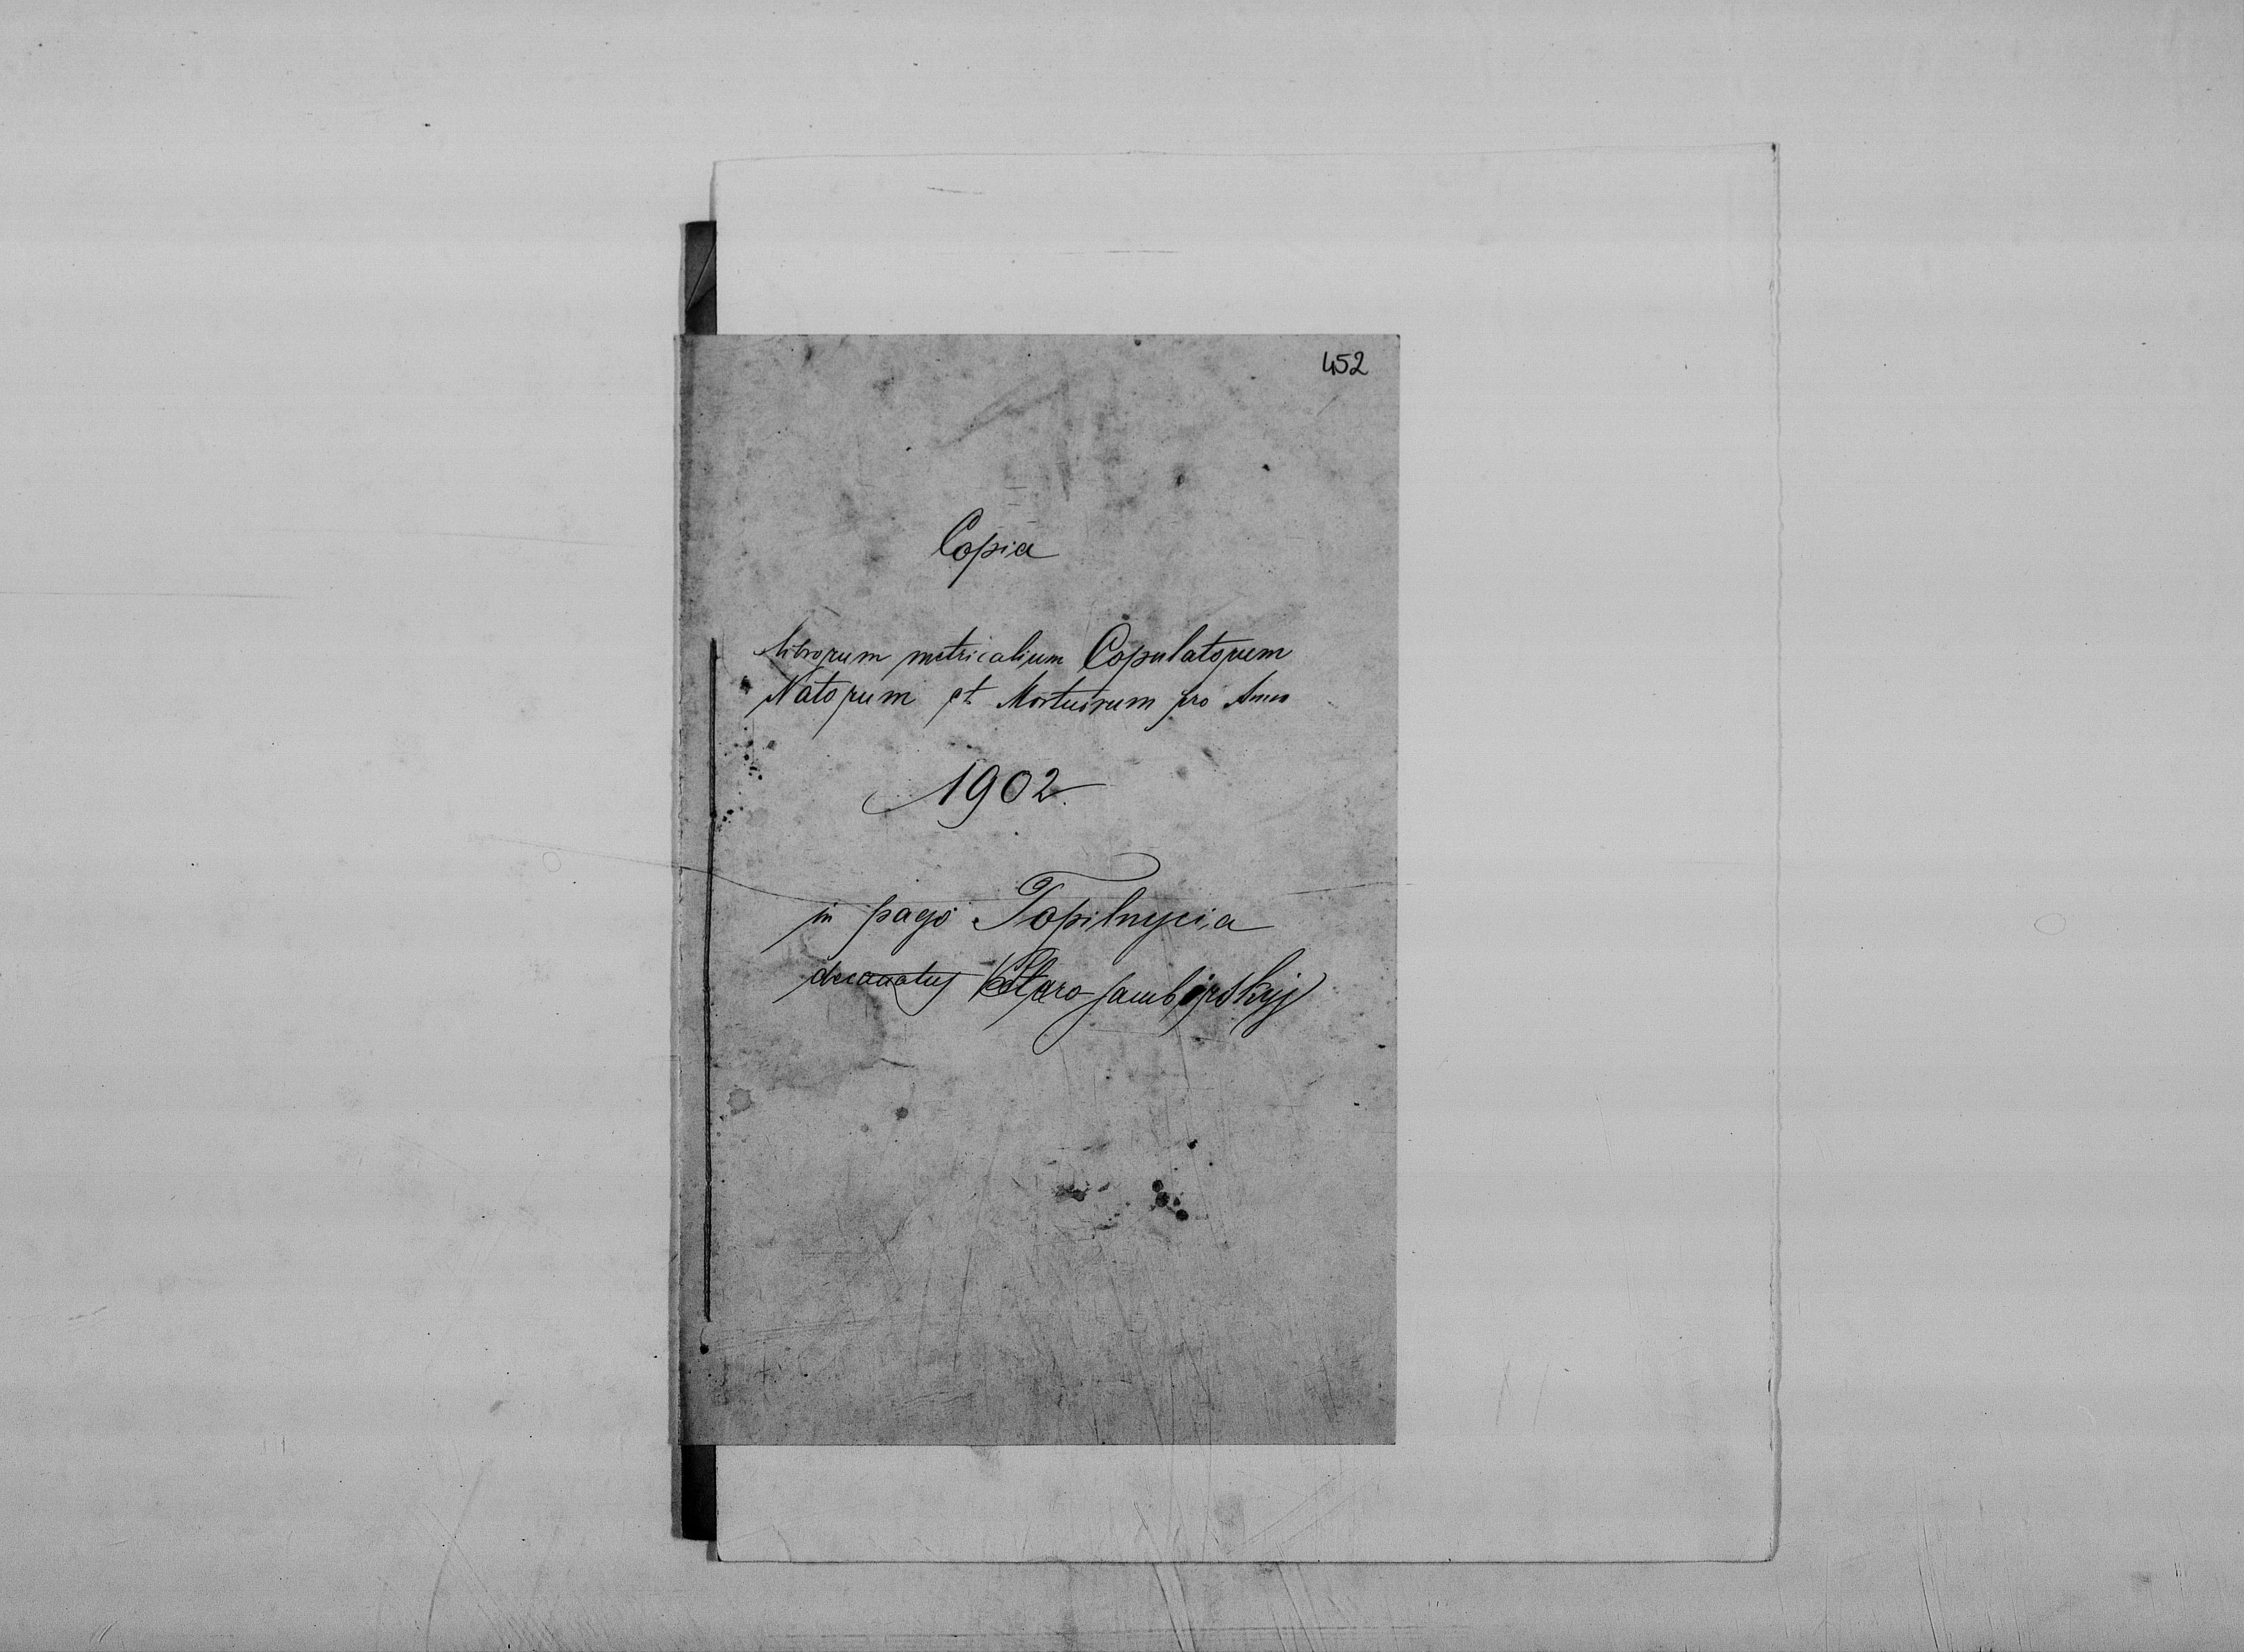 452
Copia
librorum metricalium Copulatorum
Natorum et Mortuorum pro Anno
1902.
in pago Topilnycia
decanatus Staro-samborskyj